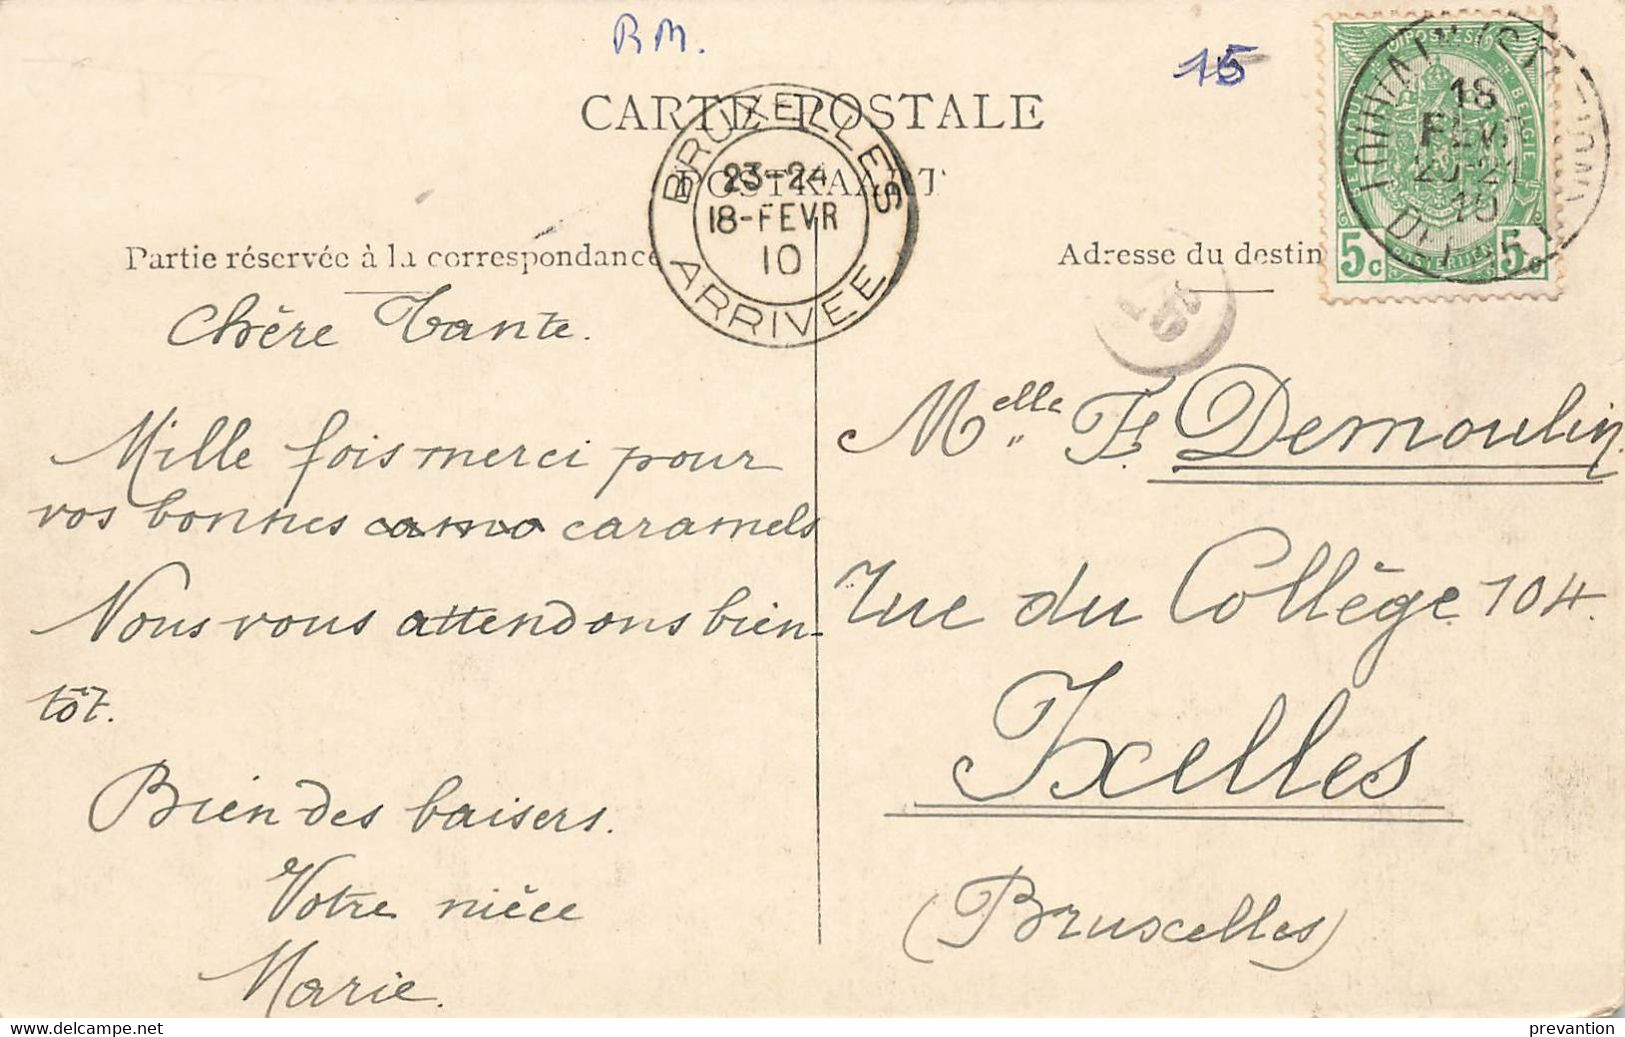 RM.
15
CARTE POSTALE
POSTKAART
BRUXELLES
23-24
18-FEVR
10
ARRIVEE
18
10
5c 5c
Partie réservée à la correspondance
Adresse du destin
Chère Tante.
Mille fois merci pour
vos bonnes camo caramels
Nous vous attendons bien-
tôt.
Bien des baisers.
Votre nièce
Marie.
Melle F. Demoulin.
rue du Collège 104.
Ixelles
(Bruxelles)
delcampe.net
prevantion